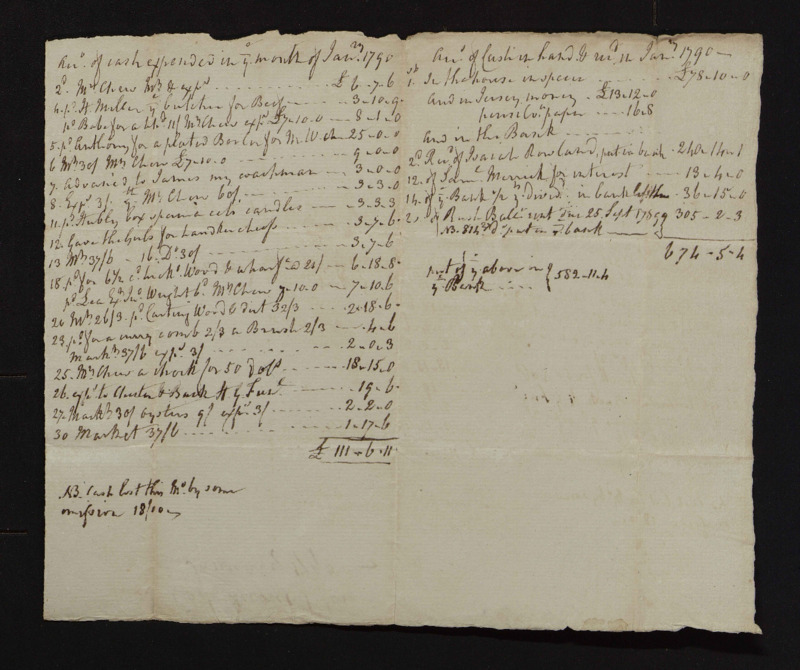 Acc.t of cash expended in ye month of Jan.ry 1790
2d. Mrs Chew Mt & exps ... £6-7-6
4. pd. H Miller ye butcher for Beef ... 3-10-9
pd Babe for a Mrs Chew exps £7-10-0 ... 8-1-0
5. pd Anthony for a plated Boiler for Mr Wch 25-0-0
6 Mt 30/ Mrs Chew £7-10-0 ... 9-0-0
7. Advanced to James my coachman ... 3-0-0
8. Exps 3/. Mrs Chew 60/. ... 3-3-0
11. pd Stubly box spermaceti candles ... 3-3-3
12. Gave the girls for handkerchiefs ... 3-7-6
13 Mt 37/6 - 16. Do 30/ ... 3-7-6
18. pd for 6 1/2 Cds hick.y Wood & wharfge 24/ ... 6-18-8
pd Lea Wright Mrs Chew 7-10-0 ... 7-10-6
20 Mt 26/3. pd Carting Wood & dirt 32/3 ... 2-18-6
23. pd for a curry comb 2/3 a Brush 2/3 ... -4-6
Markt 37/6 exps 3/ ... 2-0-3
25. Mrs Chew a check for 50 dols ... 18-15-0
26. exps to Chester & Back ... 19-6
27. Markt 30/ oysters 9/ exps 3/ ... 2-2-0
30 Market 37/6 ... 1-17-6
£ 111-6-11
NB. Cash lost this Mo. by some
omission 18/10
Acct. of Cash in hand & recd in Janry 1790
1. In the house in specie ... £78-10-0
And in Jersey money £13-12-0
pensa paper ... 16-8
And in the Bank ...
2d Recd of Isaiah Rowland, put in bank 240-14-1
12. of Saml Merrick for interest ... 13-4-0
14. of ye Bank pr ye divid. in bank 36-15-0
of Rush Bale due 25. Sept 1789 305-2-3
NB. put in ye bank
674-5-4
part of ye above in
ye Bank ... } 582-11-4